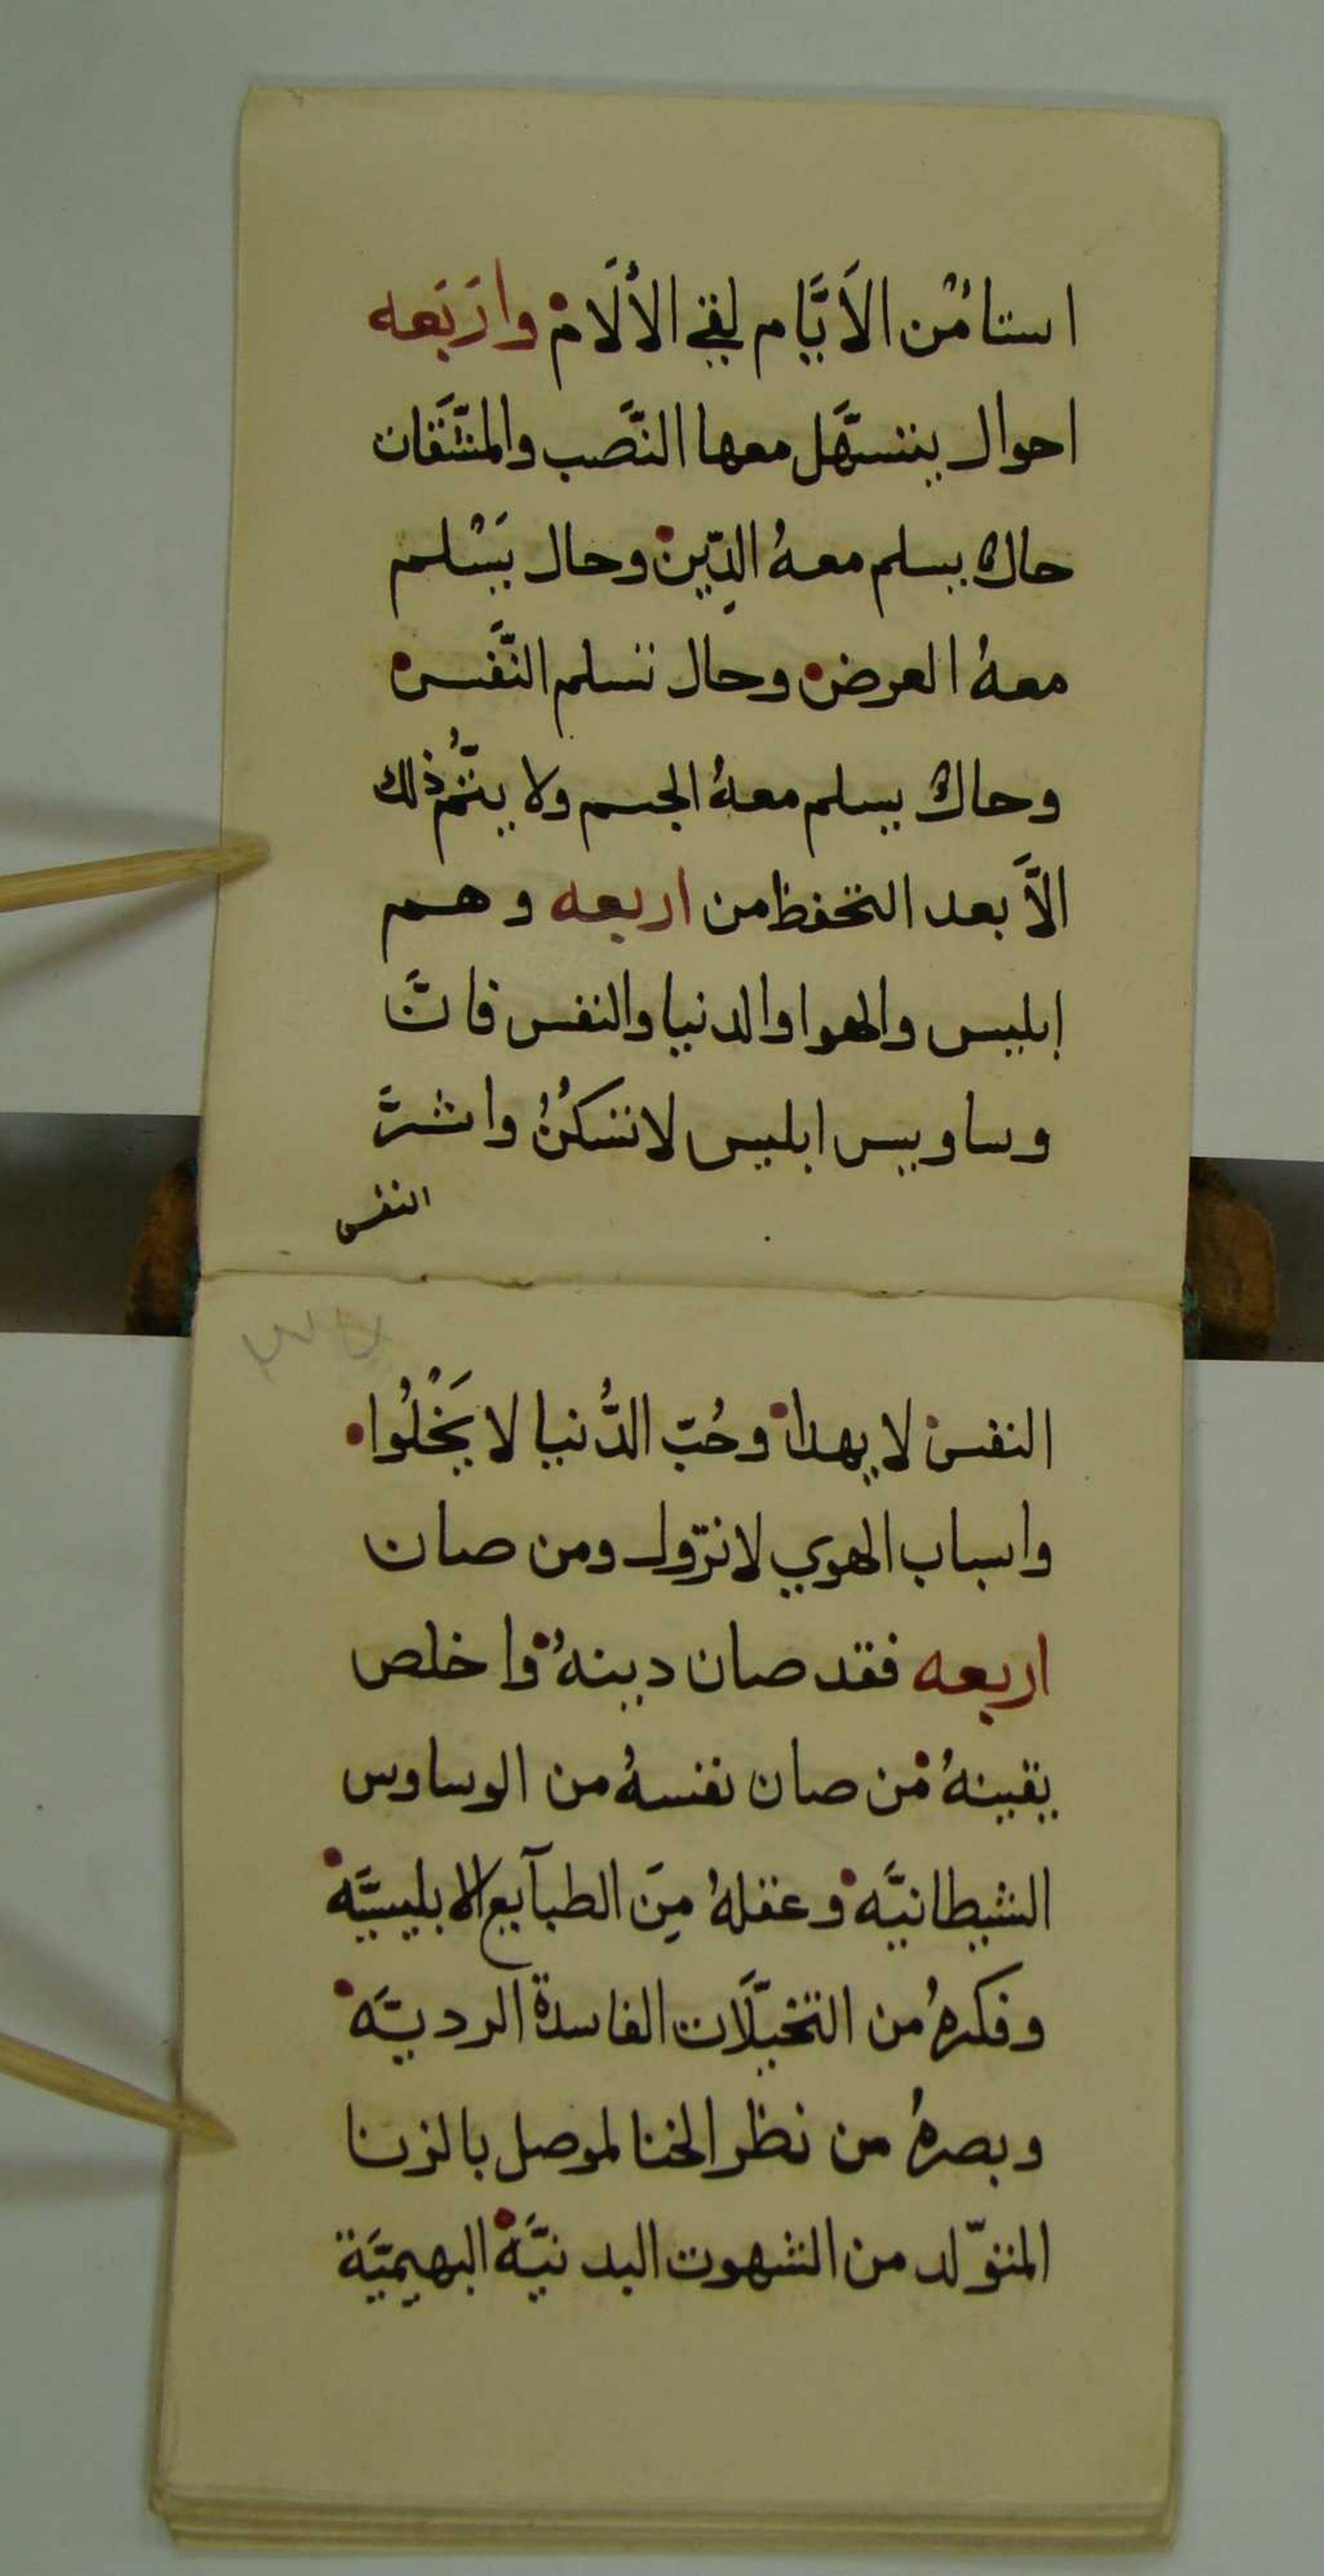 استامٔن الاَيَّام لقي الألَام وارَبَعه
احوال يتسهَّل معها النَّصب والمشَّقات
حالٌ يسلم معهُ الدِّين وحال يَسْلم
معهُ العرض وحال تسلم النَّفس
وحالٌ يسلم معهُ الجسم ولا يتُّم ذلك
الاَّ بعد التحفظ من اربعه وهم
إبليس والهوا والدنيا والنفس فانَّ
وساويس ابليس لا تسكُنُ واشرَّ
النفس
النفس لا يهدا وحُبّ الدُّنيا لا يَخْلُوا
واسباب الهوي لا تزول ومن صان
اربعه فقد صان دينهُ واخلص
يقينهُ من صان نفسهُ من الوساوس
الشيطانيَّه وعقلهُ مِنَ الطبآيع الابليسيَّه
وفكرهُ من التخيّلَات الفاسدة الرديَّه
وبصرهُ من نظر الخنا لموصل بالزنا
المتوّلد من الشهوت البدنيَّة البهيميَّة